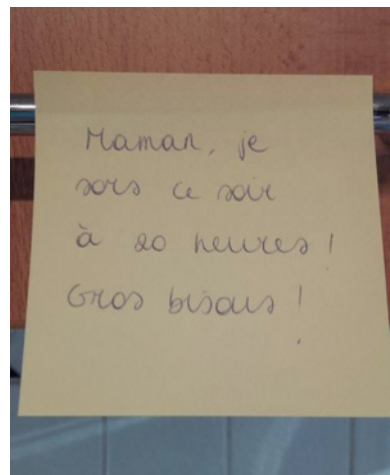 Maman, je
sors ce soir
à 20 heures !
Gros bisous !